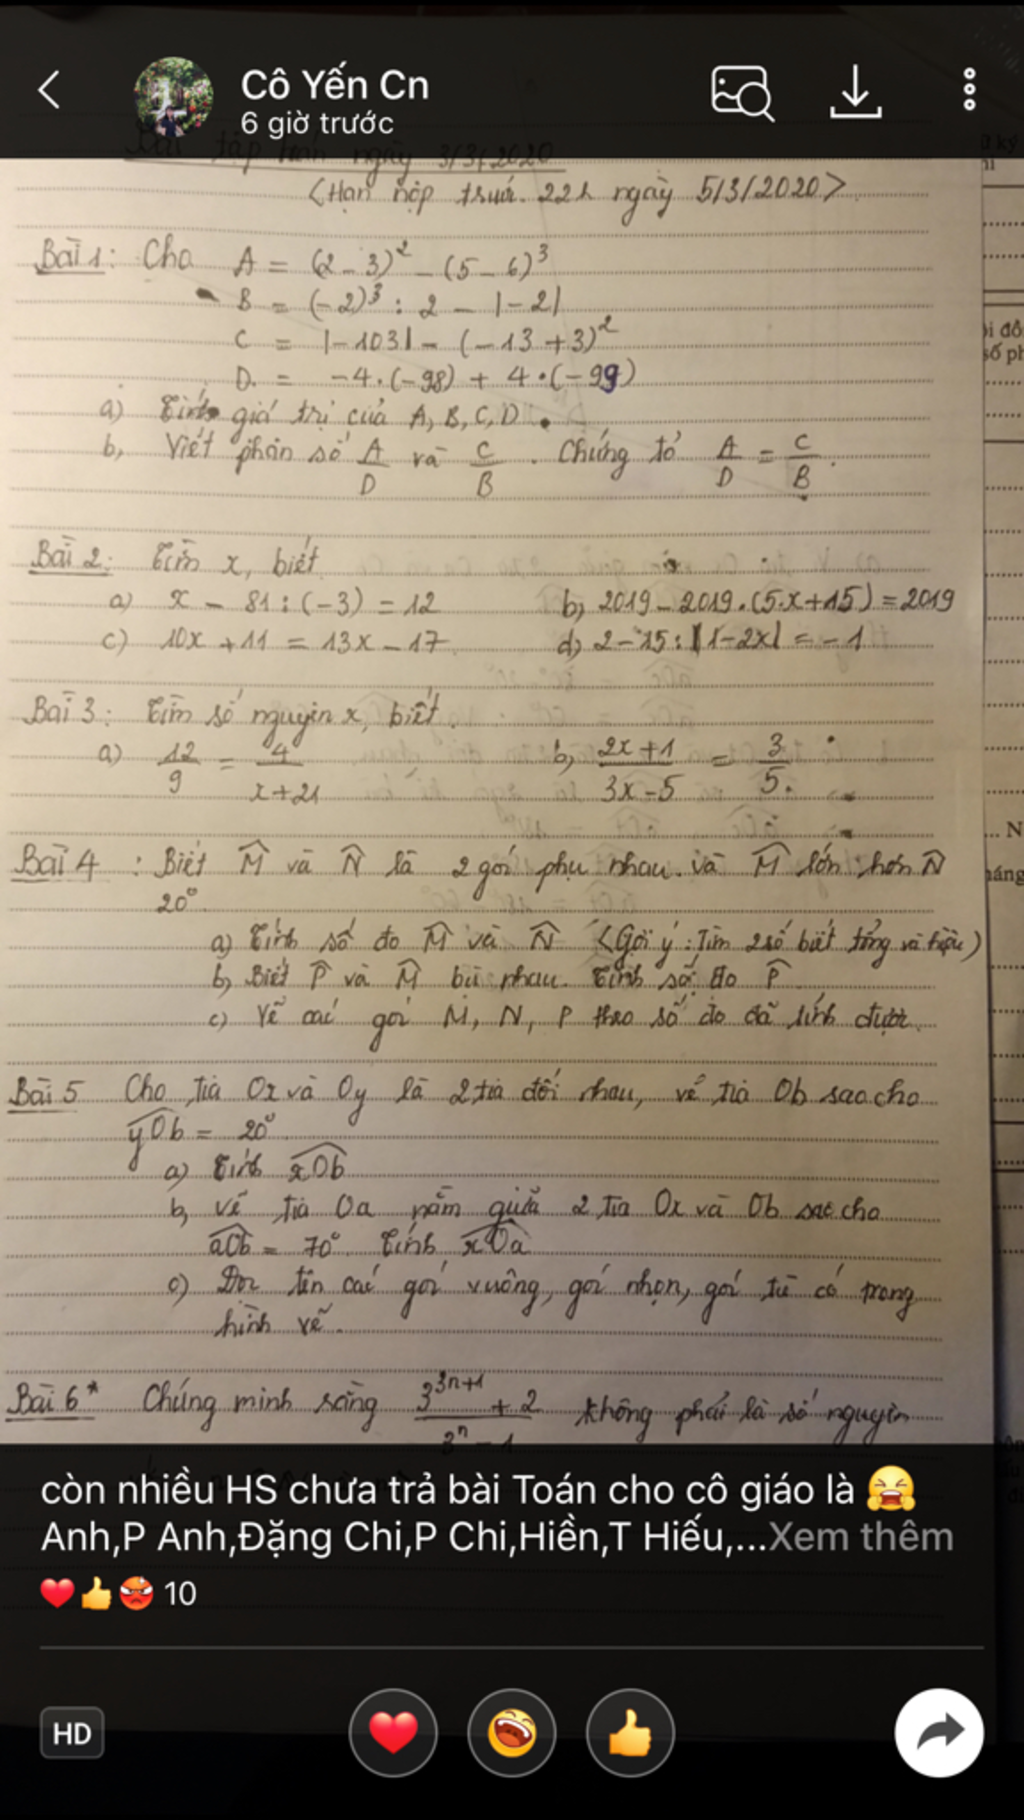 Cô Yến Cn
6 giờ trước
Bài tập hình ngày 3/3/2020
<Hạn nộp trước 22h ngày 5/3/2020>
Bài 1: Cho A = (2-3)² - (5-6)³
B = (-2)³ : 2 - |-2|
C = |-103| - (-13+3)²
D = -4.(-98) + 4.(-99)
a) Tính giá trị của A, B, C, D.
b, Viết phân số A/D và C/B. Chứng tỏ A/D = C/B.
Bài 2: Tìm x, biết
a) x - 81 : (-3) = 12 b, 2019 - 2019.(5.x+15) = 2019
c) 10x + 11 = 13x - 17 d, 2 - 15 : |1-2x| = -1
Bài 3: Tìm số nguyên x, biết
a) 12/9 = 4/x+21 b, 2x+1/3x-5 = 3/5.
Bài 4: Biết M̂ và N̂ là 2 góc phụ nhau và M̂ lớn hơn N̂
20°.
a) Tính số đo M̂ và N̂ <Gợi ý: Tìm 2 số biết tổng và hiệu)
b, Biết P̂ và M̂ bù nhau. Tính số đo P̂
c) Vẽ các góc M, N, P theo số đo đã tính được.
Bài 5 Cho tia Ox và Oy là 2 tia đối nhau, vẽ tia Ob sao cho
yOb = 20°.
a) Tính xOb
b, vẽ tia Oa nằm giữa 2 tia Ox và Ob sao cho
aOb = 70°. Tính xOa
c) Đọc tên các góc vuông, góc nhọn, góc tù có trong
hình vẽ.
Bài 6* Chứng minh rằng 3³ⁿ⁺¹ + 2 / 3ⁿ - 1 không phải là số nguyên
còn nhiều HS chưa trả bài Toán cho cô giáo là
Anh,P Anh,Đặng Chi,P Chi,Hiền,T Hiếu,...Xem thêm
10
HD